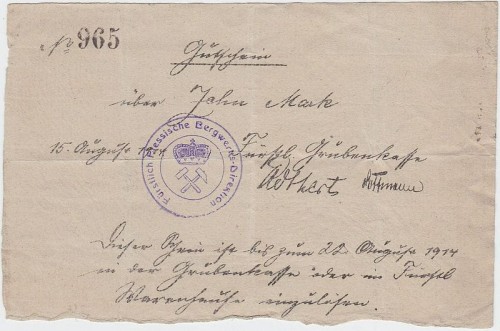 No 965
Gutschein
über Zehn Mark
15. August 1914 Fürstl. Grubenkasse
Fürstlich Plessische Bergwerks-Direktion
Dieser Schein ist bis zum 22. August 1914
in der Grubenkasse oder im Fürstl
Warenhause einzulösen.